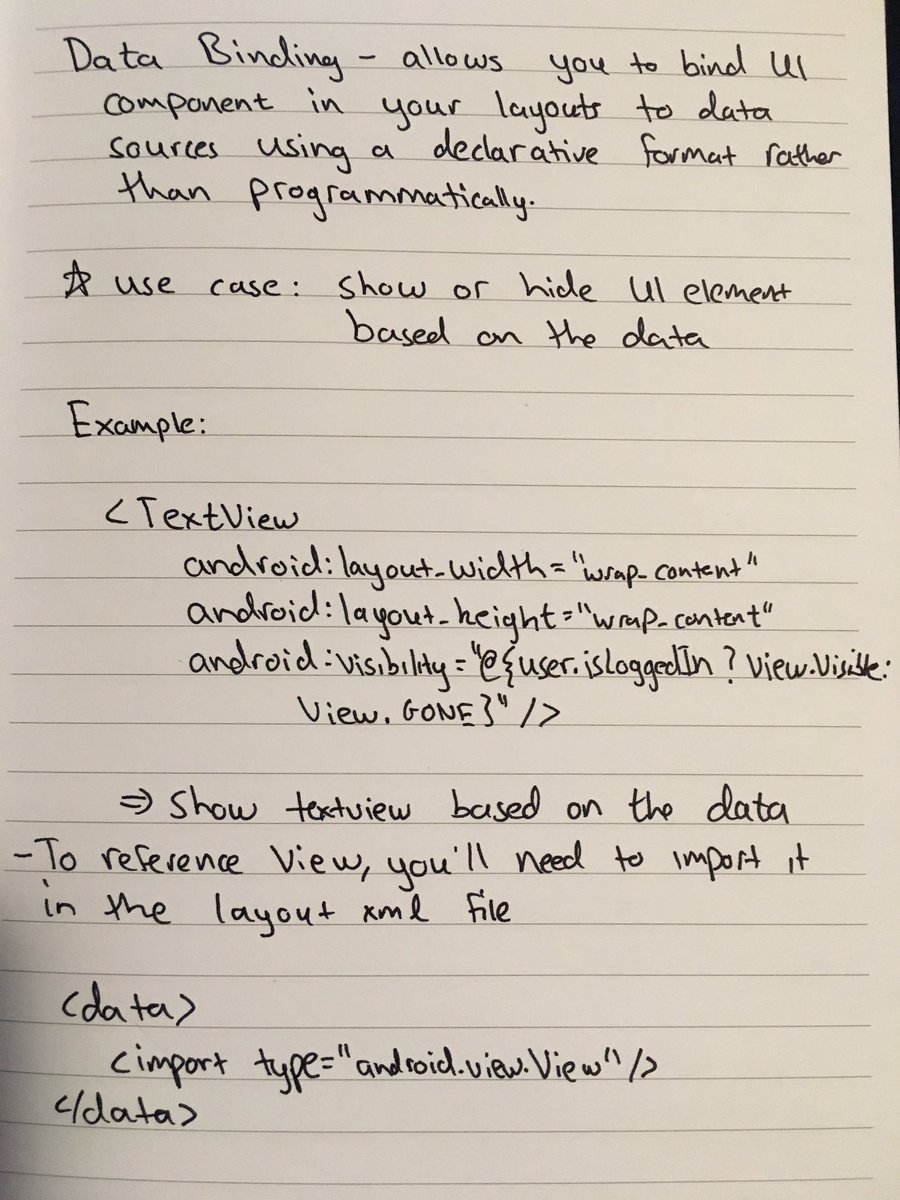 Data Binding - allows you to bind UI
component in your layouts to data
sources using a declarative format rather
than programmatically.
☆ use case: show or hide UI element
based on the data
Example:
<TextView
android:layout_width="wrap_content"
android:layout_height="wrap_content"
android:visibility="@{user.isLoggedIn ? View.Visible:
View.GONE}" />
⇒ Show textview based on the data
- To reference View, you'll need to import it
in the layout xml file
<data>
<import type="android.view.View"/>
</data>